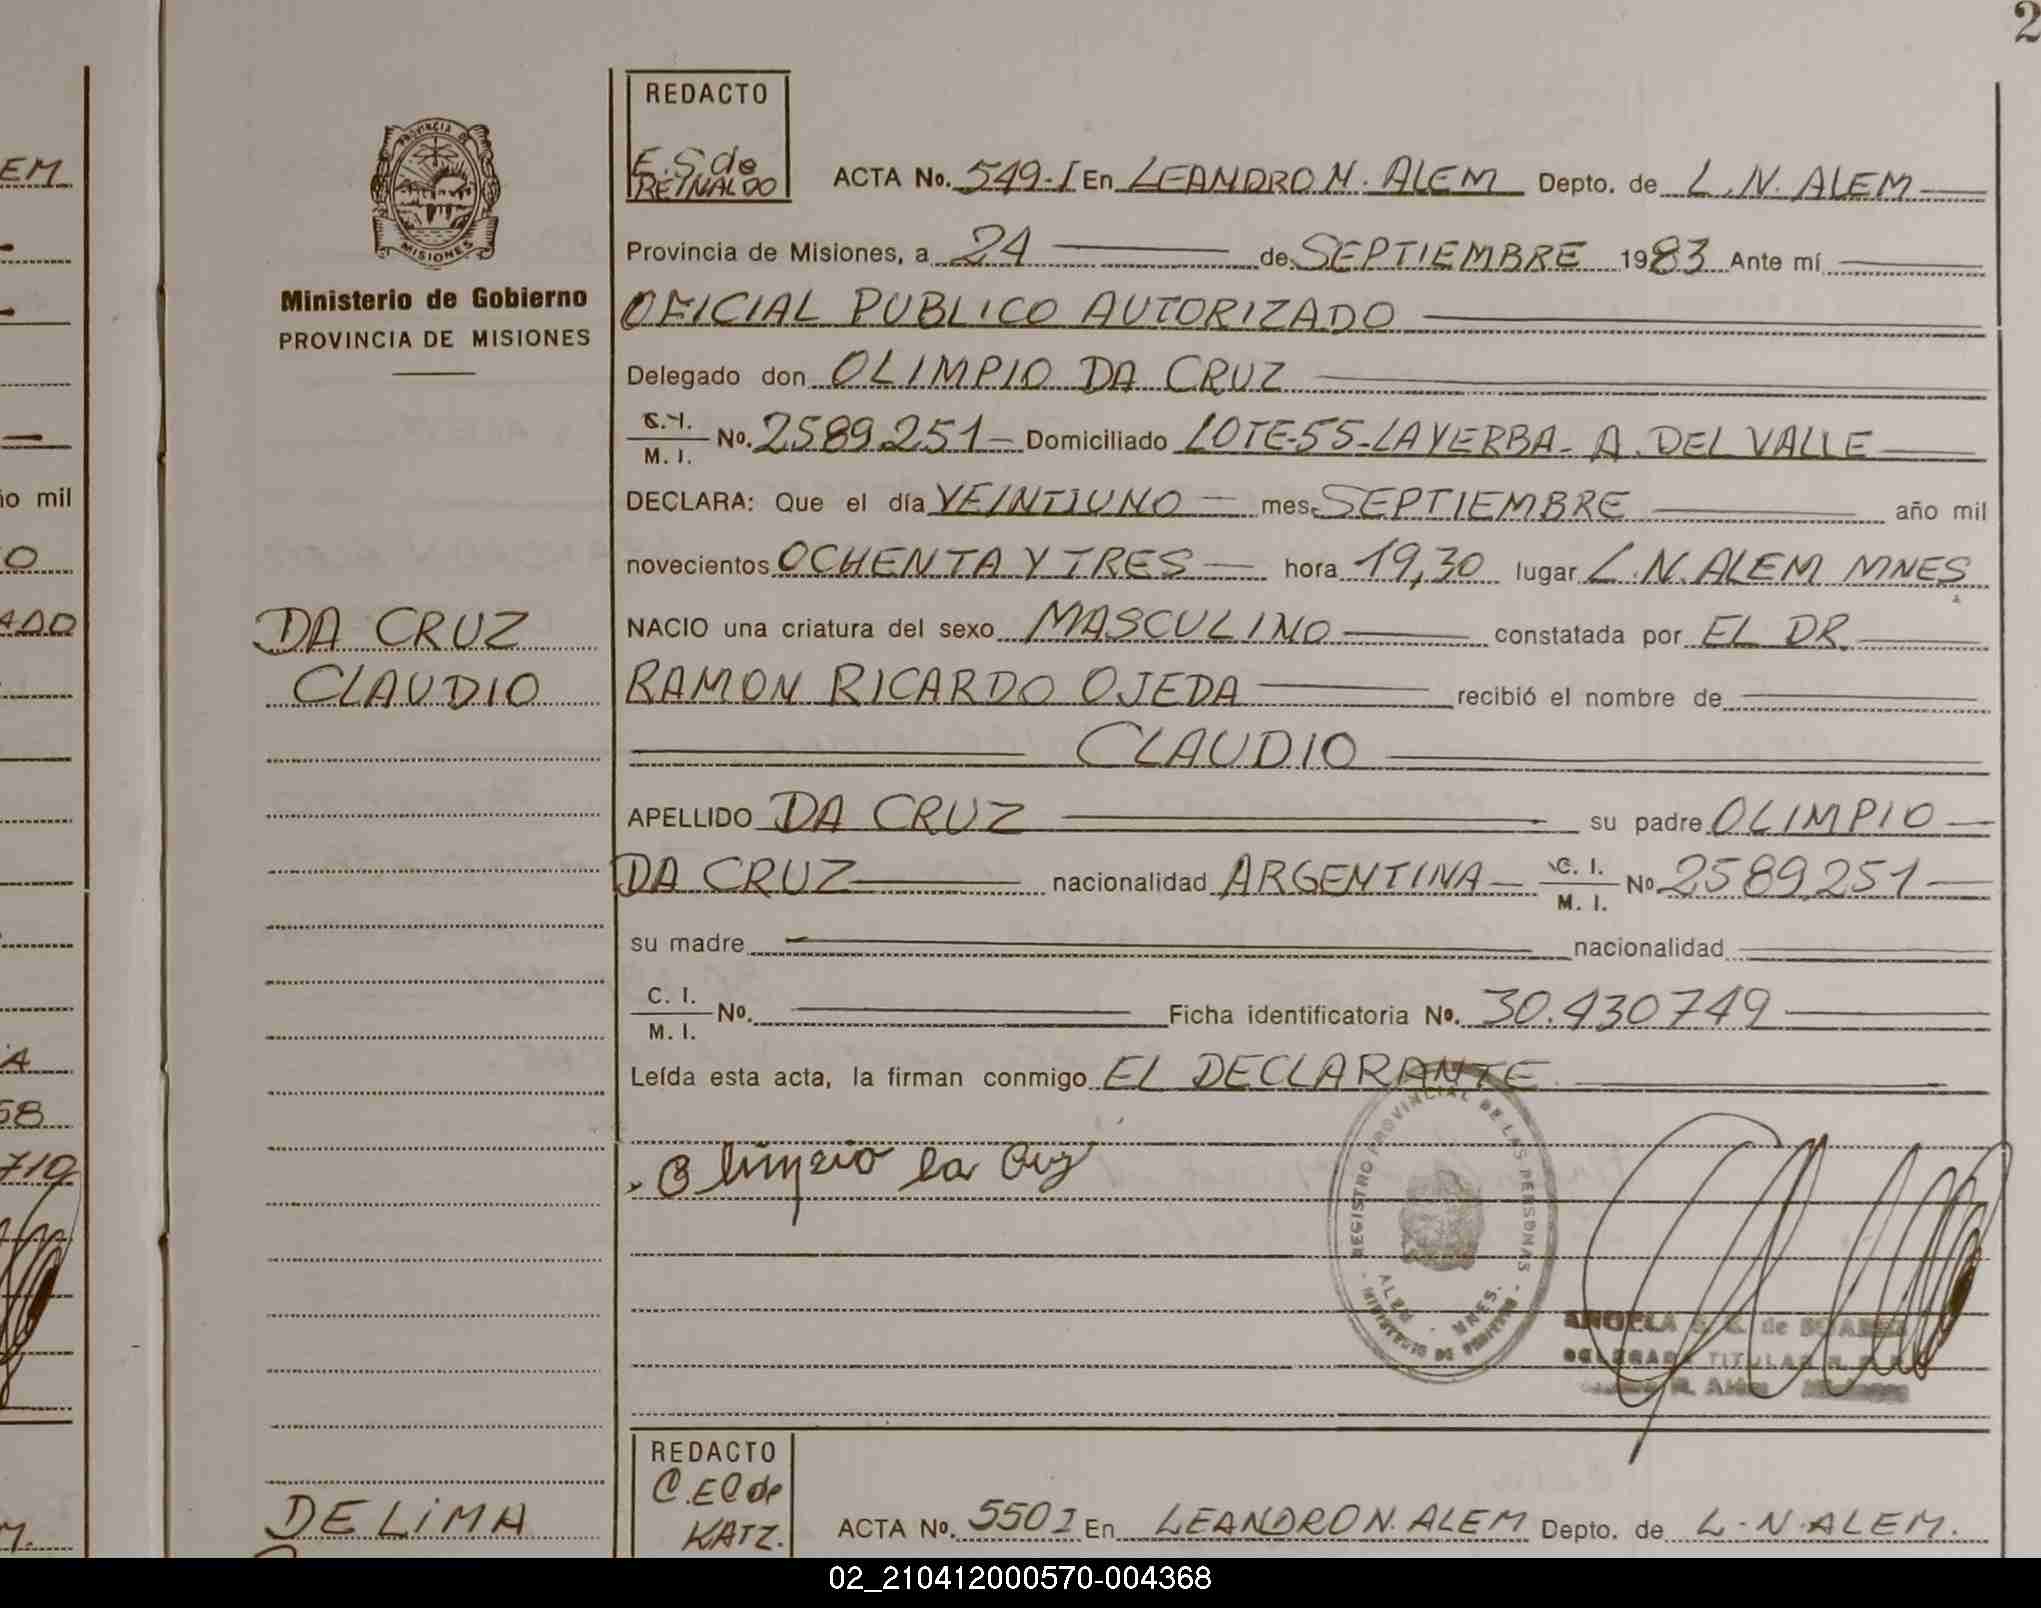 2
REDACTO
E. S. de
REINALDO
ACTA No. 549-I En LEANDRO N. ALEM Depto. de L. N. ALEM
PROVINCIA DE
MISIONES
Ministerio de Gobierno
PROVINCIA DE MISIONES
Provincia de Misiones, a 24 de SEPTIEMBRE 1983 Ante mí
OFICIAL PUBLICO AUTORIZADO
Delegado don OLIMPIO DA CRUZ
C.I.
M. I. No. 2589.251 Domiciliado LOTE-55-LA YERBA- A. DEL VALLE
DECLARA: Que el día VEINTIUNO mes SEPTIEMBRE año mil
novecientos OCHENTA Y TRES hora 19,30 lugar L.N. ALEM MNES
NACIO una criatura del sexo MASCULINO constatada por EL DR.
RAMON RICARDO OJEDA recibió el nombre de
CLAUDIO
APELLIDO DA CRUZ su padre OLIMPIO
DA CRUZ nacionalidad ARGENTINA C. I.
M. I. No 2589,251
su madre nacionalidad
C. I.
M. I. No. Ficha identificatoria No. 30.430749
Leída esta acta, la firman conmigo EL DECLARANTE
DA CRUZ
CLAUDIO
Olimpio
REGISTRO PROVINCIAL DE LAS PERSONAS
MINISTERIO DE GOBIERNO
ALEM - MNES.
ANGELA de
DELEGADA TITULAR
N. Alem Misiones
REDACTO
C. EC de
KATZ.
DE LIMA
ACTA No. 550 I En LEANDRO N. ALEM Depto. de L-N-ALEM.
EM
io mil
O
ADO
A
58
710
M.
02_210412000570-004368